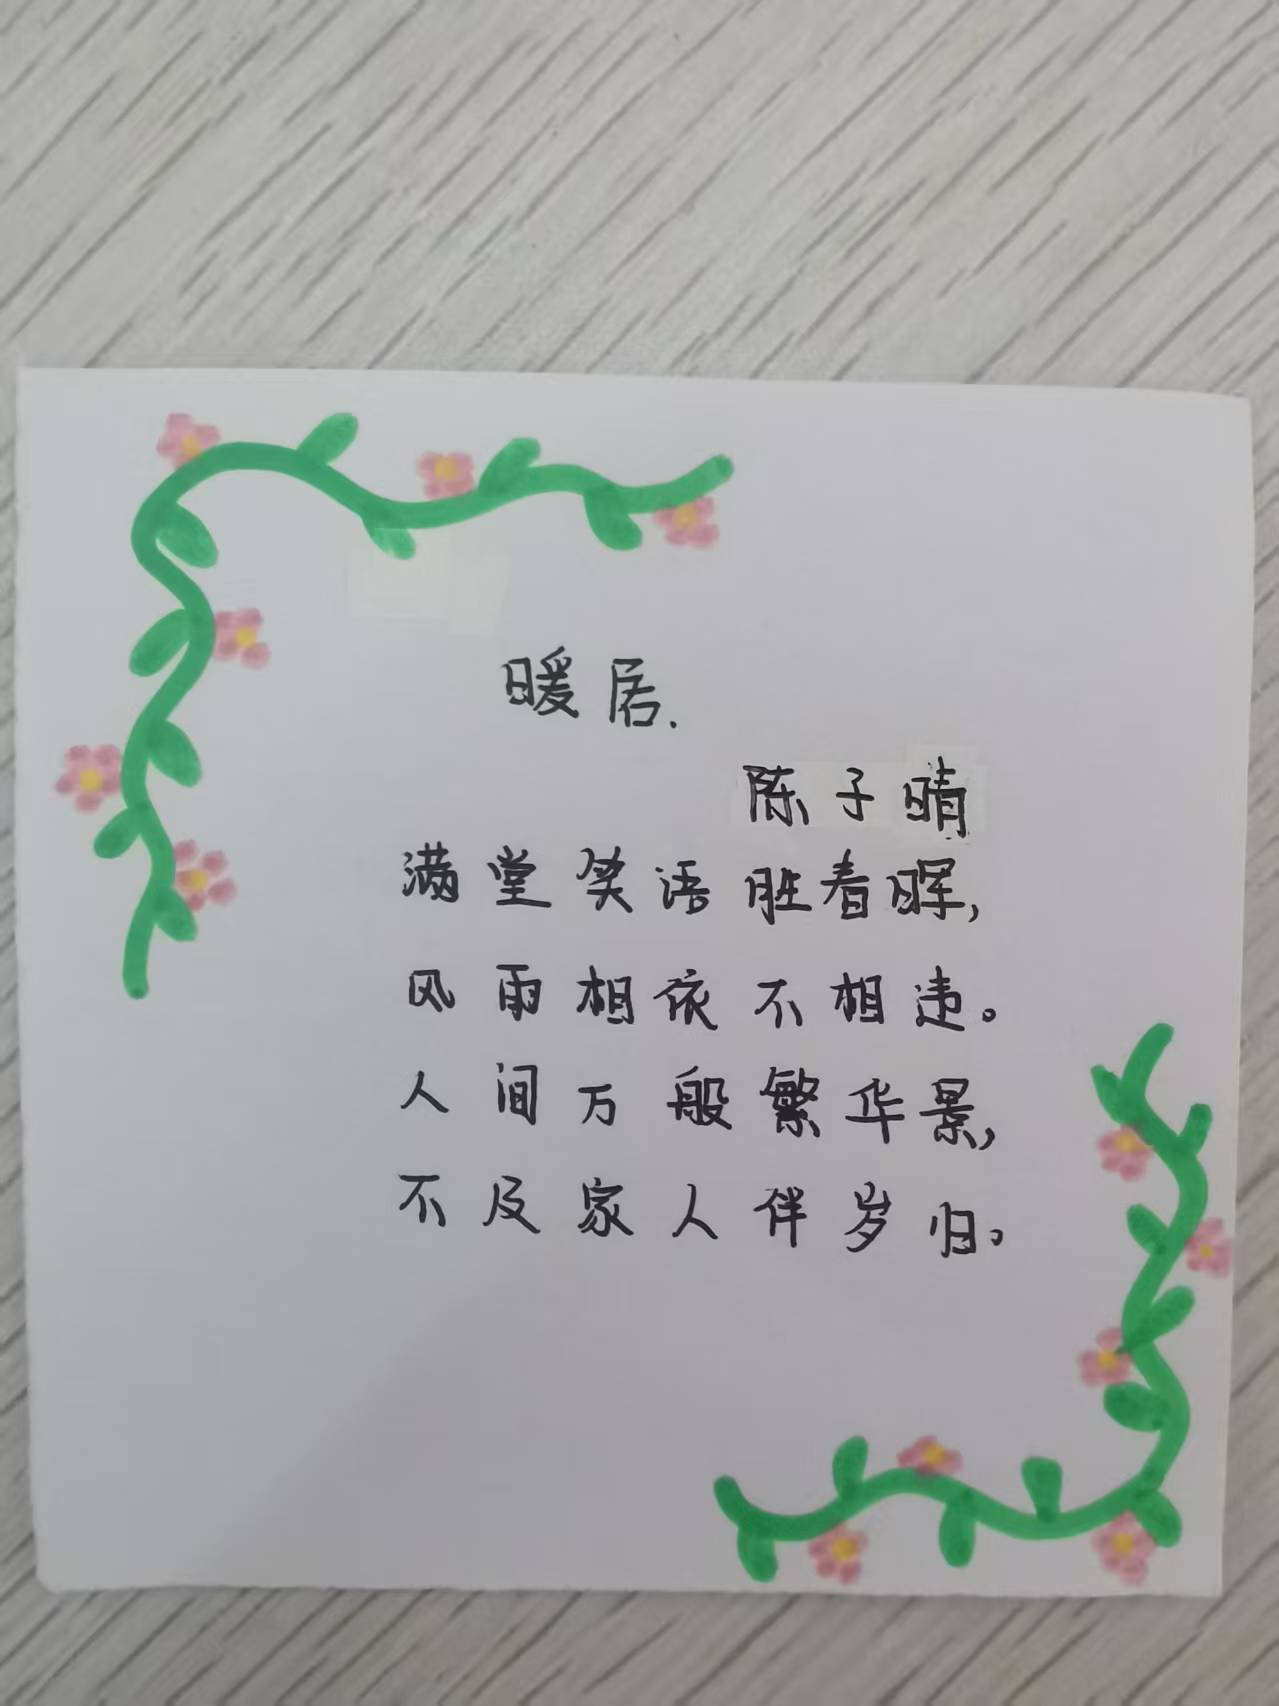 暖居.
陈子晴
满堂笑语胜春晖,
风雨相依不相违。
人间万般繁华景,
不及家人伴岁归。